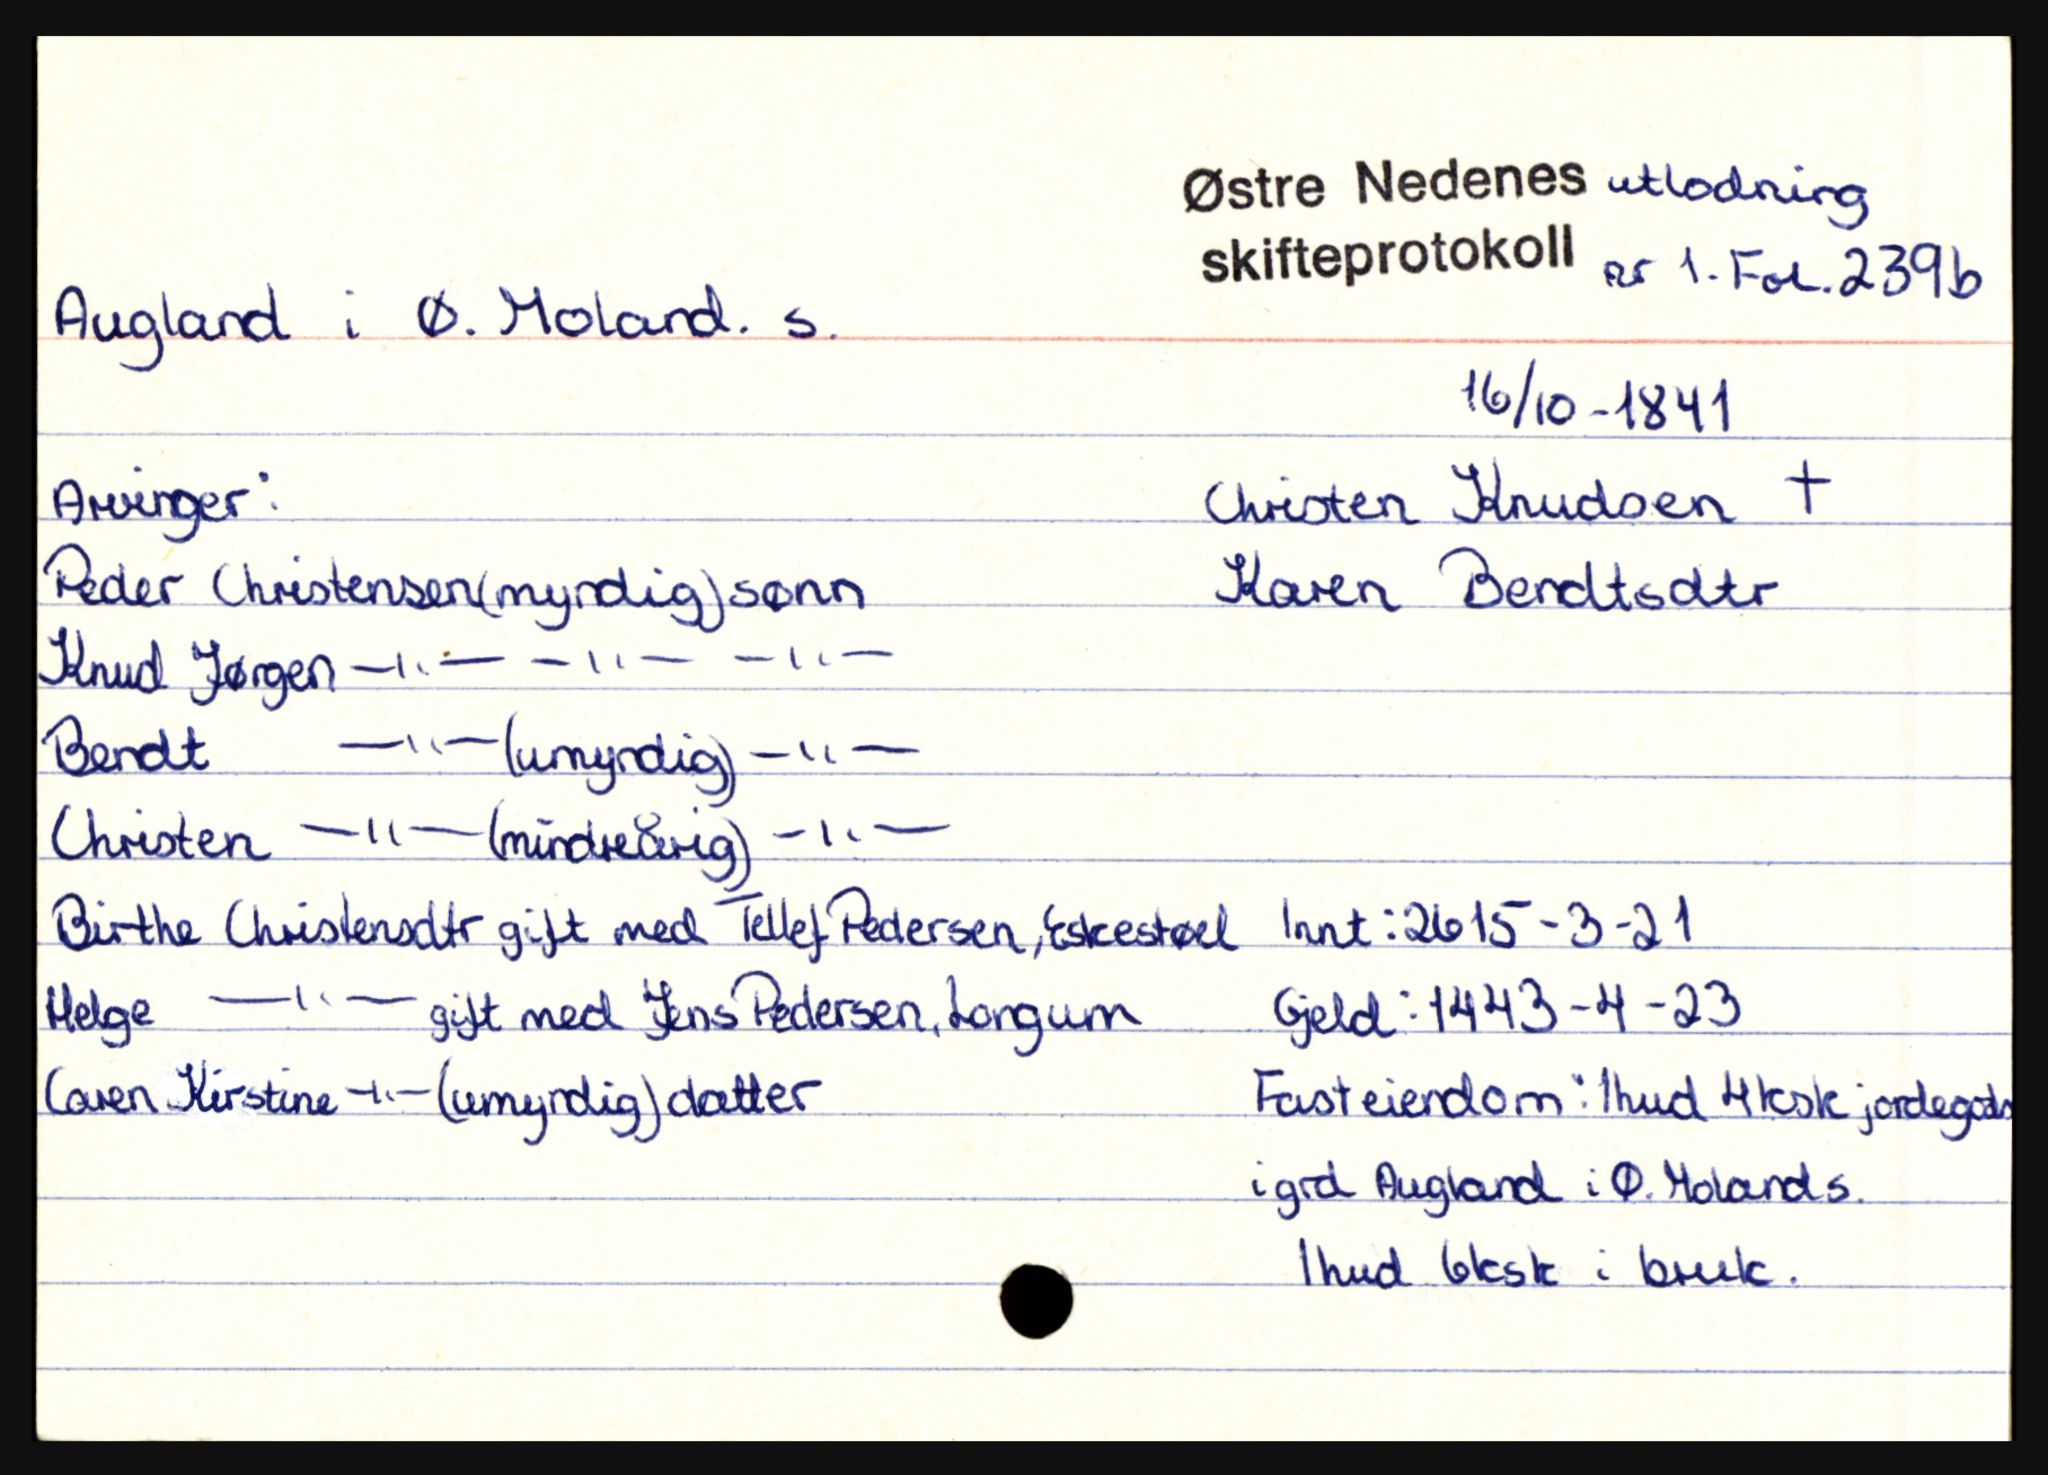 Østre Nedenes utlodning
skifteprotokoll nr 1. Fol. 239b
Augland i Ø. Moland. s.
16/10-1841
Arvinger:
Christen Knudsen †
Peder Christensen (myndig) sønn
Karen Bendtsdtr
Knud Jørgen —"— —"— —"—
Bendt —"— (umyndig) —"—
Christen —"— (mindreårig) —"—
Birthe Christensdtr gift med Tellef Pedersen, Eskestøel Innt: 2615-3-21
Helge —"— gift med Jens Pedersen, Longum Gjeld: 1443-4-23
Caren Kirstine —"— (umyndig) datter Fast eiendom: 1hud 4ksk jordegods
i grd Augland i Ø. Molands.
1hud 6ksk i bruk.